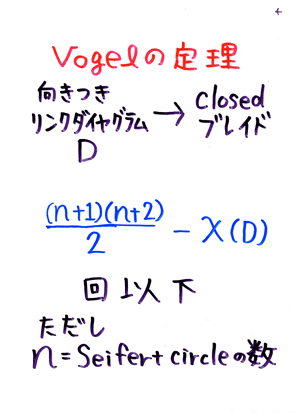 Vogelの定理
向きつき
リンクダイヤグラム → closed ブレイド
D
(n+1)(n+2)/2 - χ(D)
回以下
ただし
n = Seifert circleの数